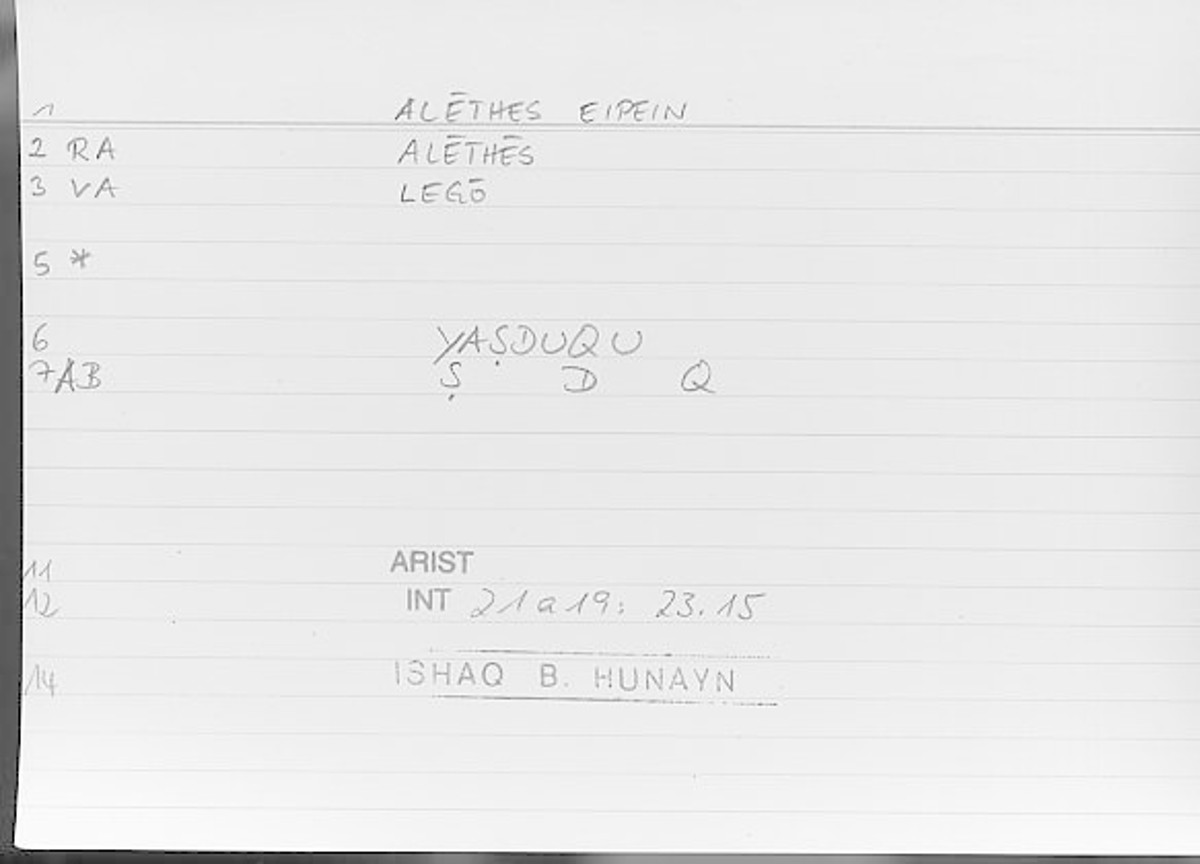 1 ALĒTHES EIPEIN
2 RA ALĒTHĒS
3 VA LEGŌ
5 *
6 YAṢDUQU
7 AB Ṣ D Q
11 ARIST
12 INT 21a19: 23.15
14 ISHAQ B. HUNAYN